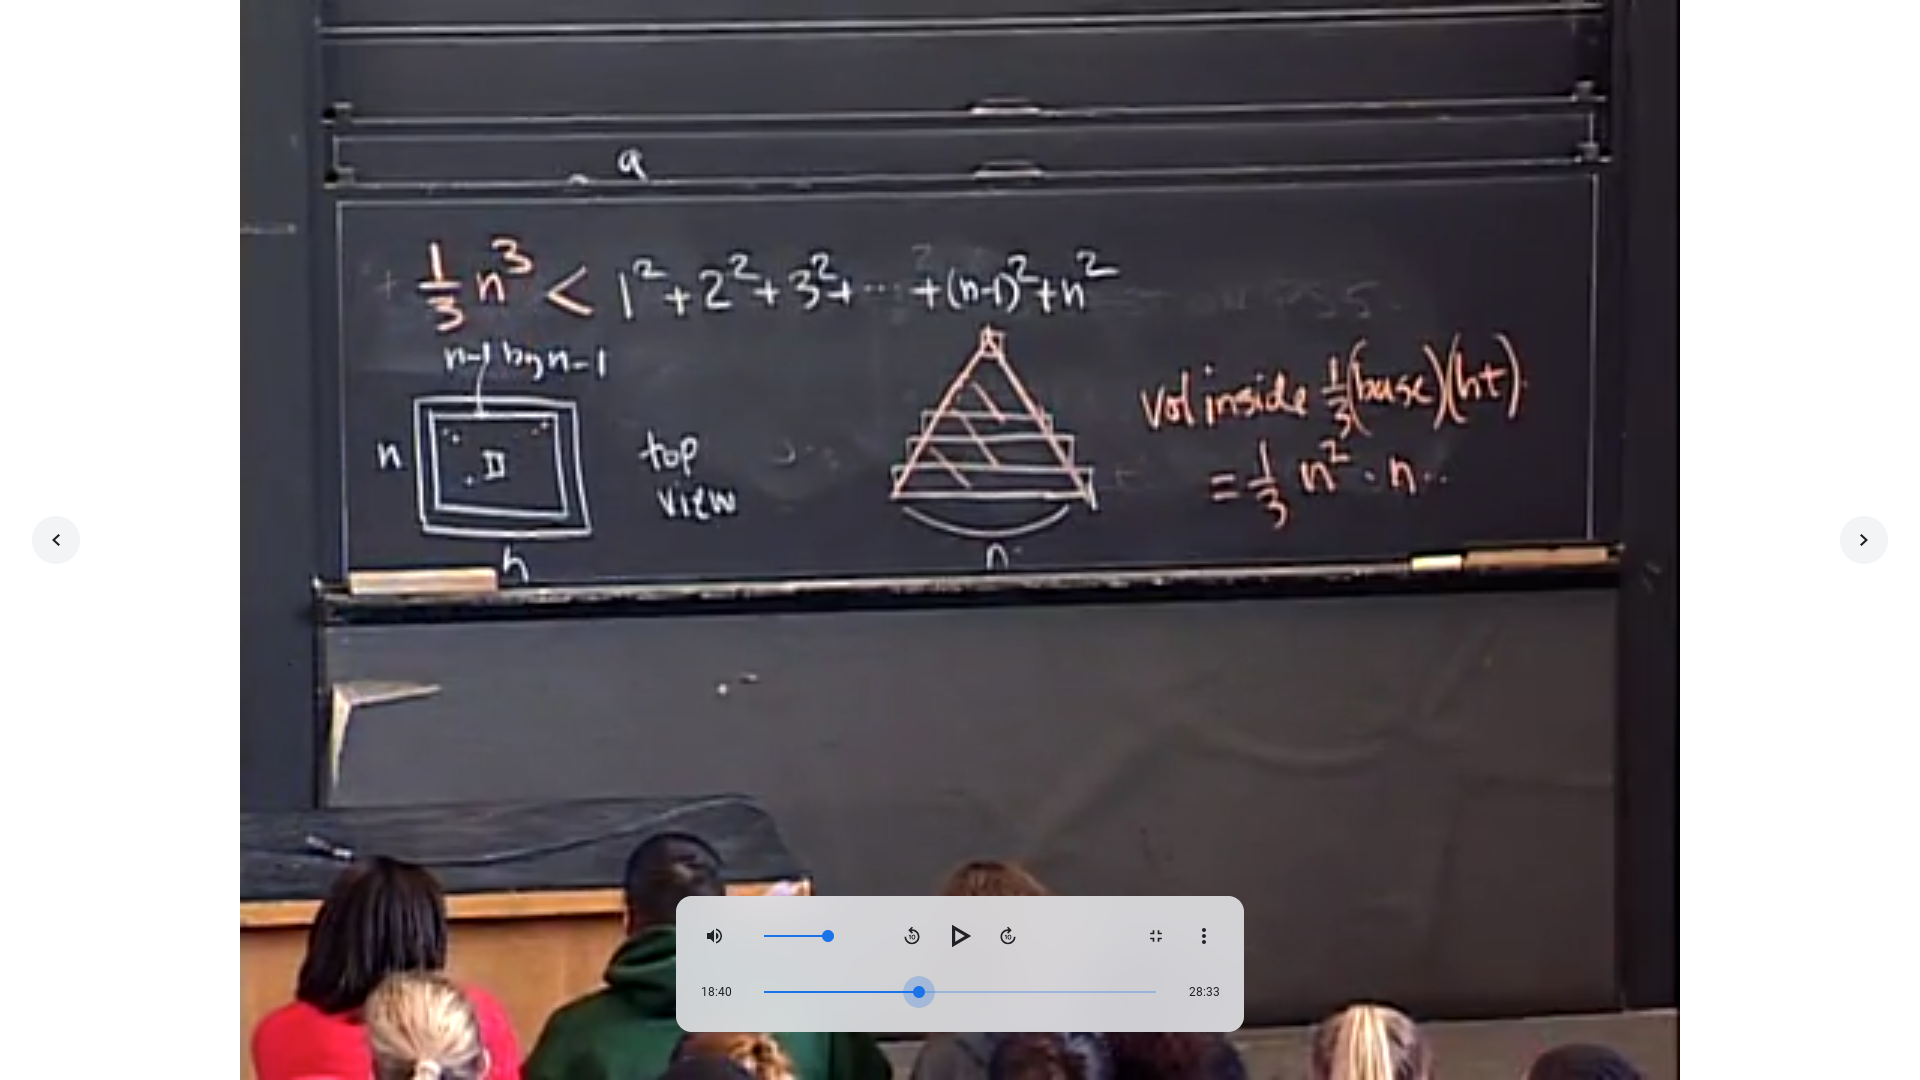 a
1/3 n³ < 1² + 2² + 3² + ... + (n-1)² + n²
n-1 by n-1
n
top
view
n
n
vol inside 1/3 (base)(ht)
= 1/3 n² · n
10 10
18:40 28:33